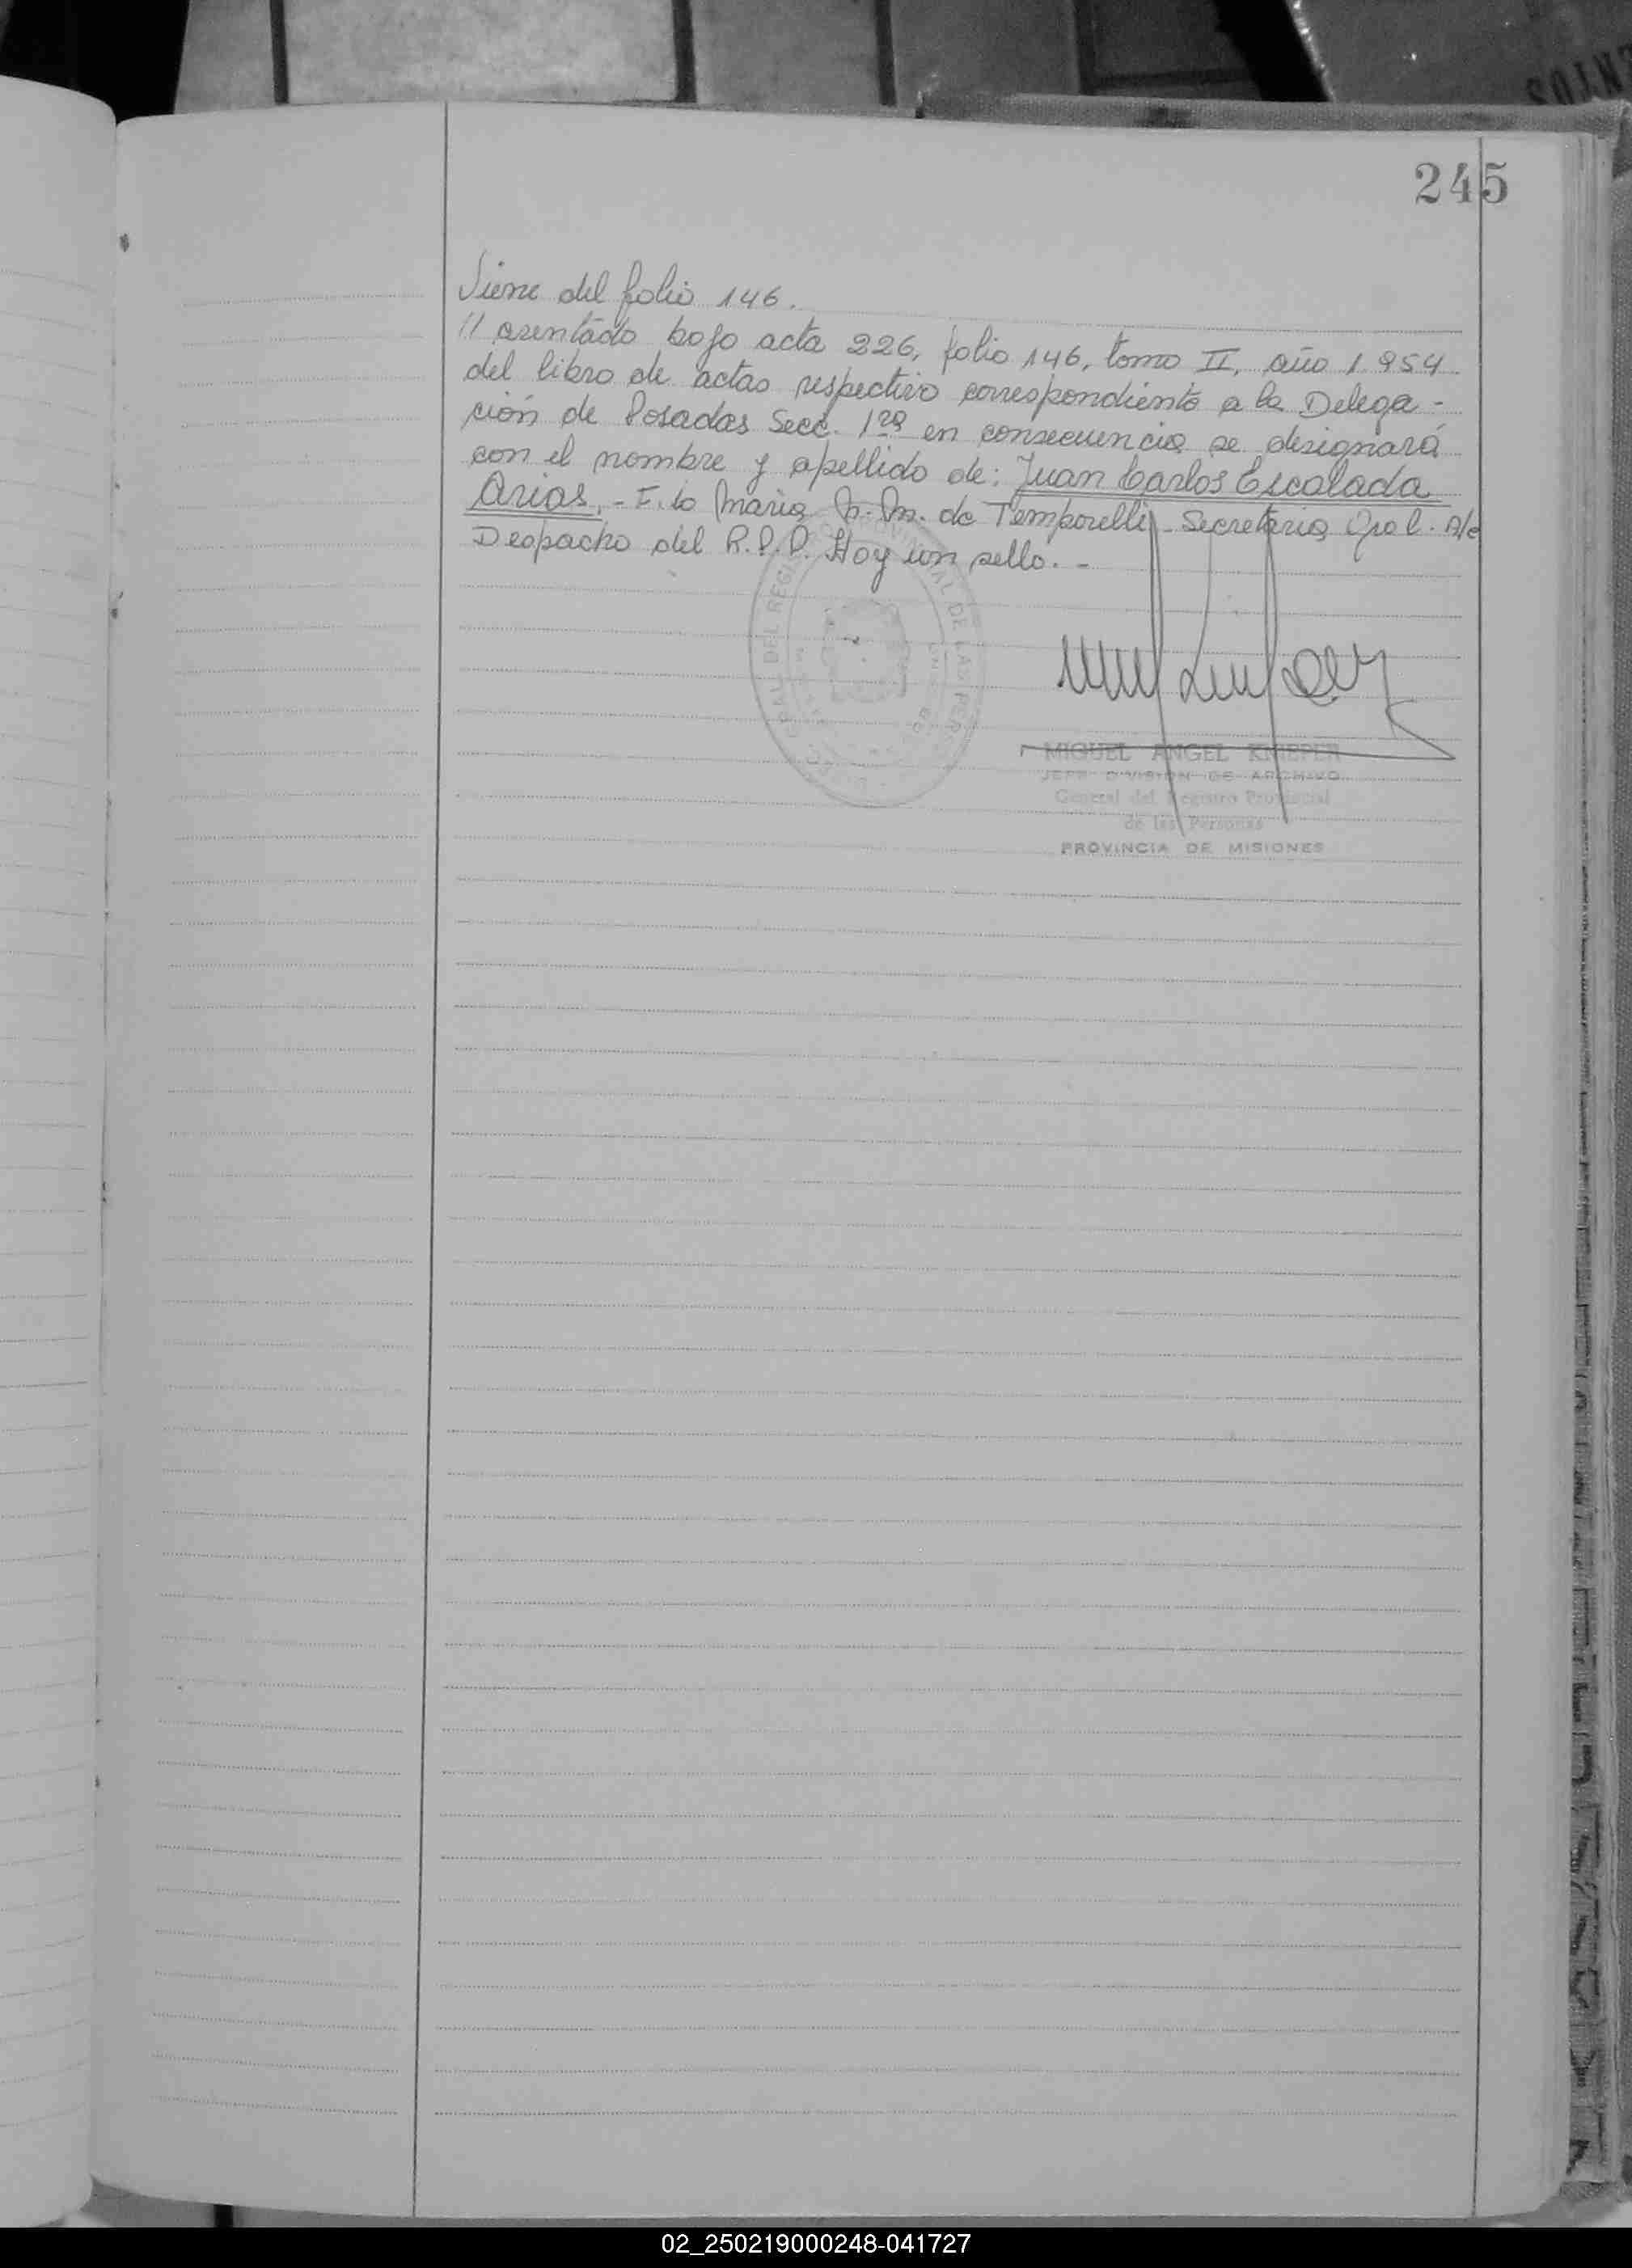 245
Viene del folio 146.
// asentado bajo acta 226, folio 146, tomo II, año 1.954
del libro de actas respectivo correspondiente a la Delega-
ción de Posadas Secc. 1ra en consecuencia se designará
con el nombre y apellido de: Juan Carlos Escalada
Arias. - F.do María de Temporelli - Secretaria Gral. A/c
Despacho del R.P.P. Hay un sello. -
GRAL. DEL REGISTRO PROVINCIAL DE LAS PERS
MIGUEL ANGEL KNIEPER
JEFE DIVISION DE ARCHIVO
General del Registro Provincial
de las Personas
PROVINCIA DE MISIONES
02_250219000248-041727